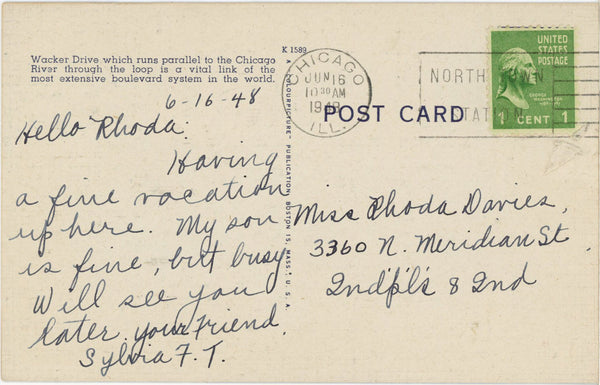 K 1589
Wacker Drive which runs parallel to the Chicago
River through the loop is a vital link of the
most extensive boulevard system in the world.
6-16-48
Hello Rhoda:
Having
a fine vacation
up here. My son
is fine, but busy
Will see you
later, your friend,
Sylvia F. T.
A "COLOURPICTURE" PUBLICATION, BOSTON 15, MASS., U. S. A.
CHICAGO
JUN 16
10 30 AM
1948
ILL.
NORTH TOWN
STATION
POST CARD
UNITED
STATES
POSTAGE
GEORGE
WASHINGTON
1 CENT 1
Miss Rhoda Davies,
3360 N. Meridian St.,
Ind'pl's 8 Ind